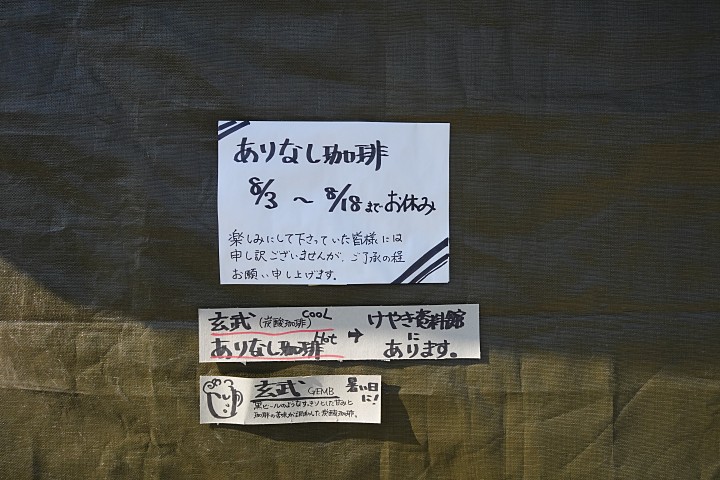 ありなし珈琲
8/3 ~ 8/18までお休み
楽しみにして下さっていた皆様には
申し訳ございませんが、ご了承の程
お願い申し上げます。
玄武(炭酸珈琲)COOL
ありなし珈琲Hot
→ けやき資料館
に
あります。
玄武 GEMB
暑い日
に!
黒ビールのようなすっきりとした甘みと
珈琲の苦味が調和した炭酸珈琲。